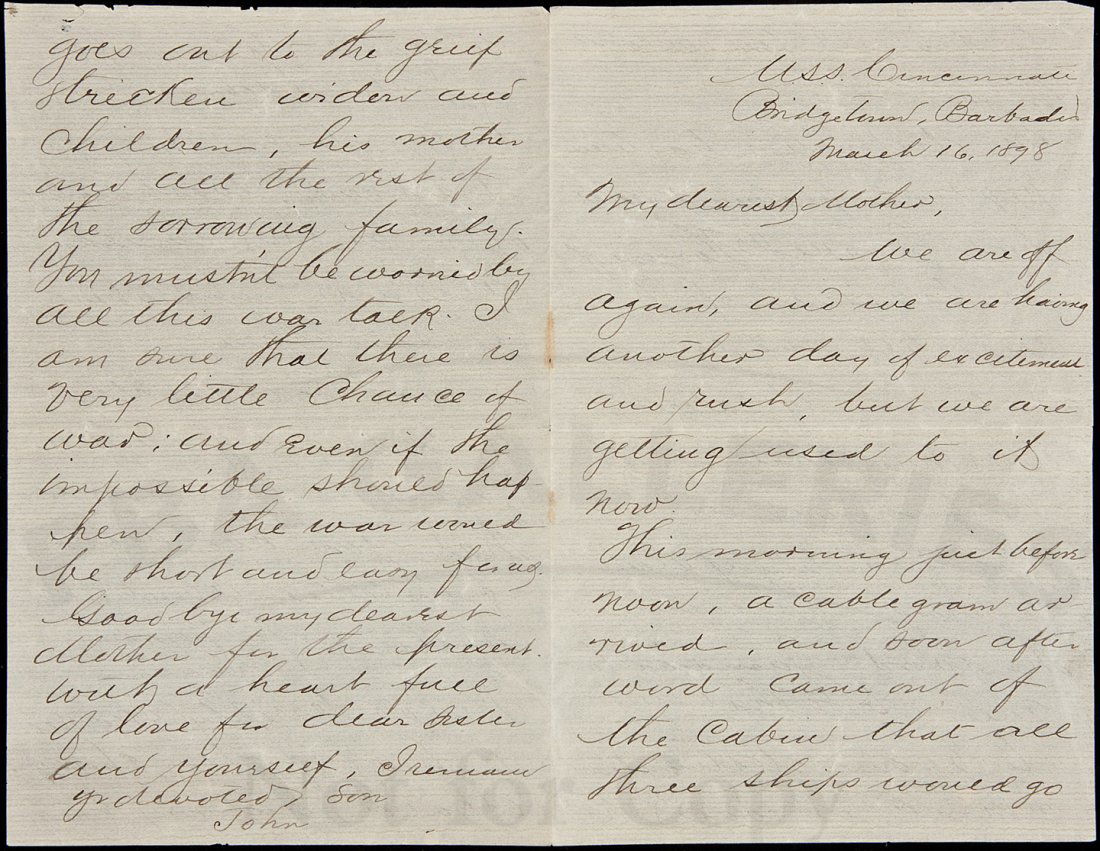 U.S.S. Cincinnati
Bridgetown, Barbados
March 16, 1898
My dearest Mother,
We are off
again, and we are having
another day of excitement
and rush, but we are
getting used to it
now.
This morning just before
noon, a cablegram ar-
rived, and soon after
word came out of
the Cabin that all
three ships would go
goes out to the grief
stricken widow and
children, his mother
and all the rest of
the sorrowing family.
You mustn't be worried by
all this war talk. I
am sure that there is
very little chance of
war; and even if the
impossible should hap-
pen, the war would
be short and easy for us.
Good bye my dearest
Mother for the present.
With a heart full
of love for dear sister
and yourself, I remain
yr devoted Son
John